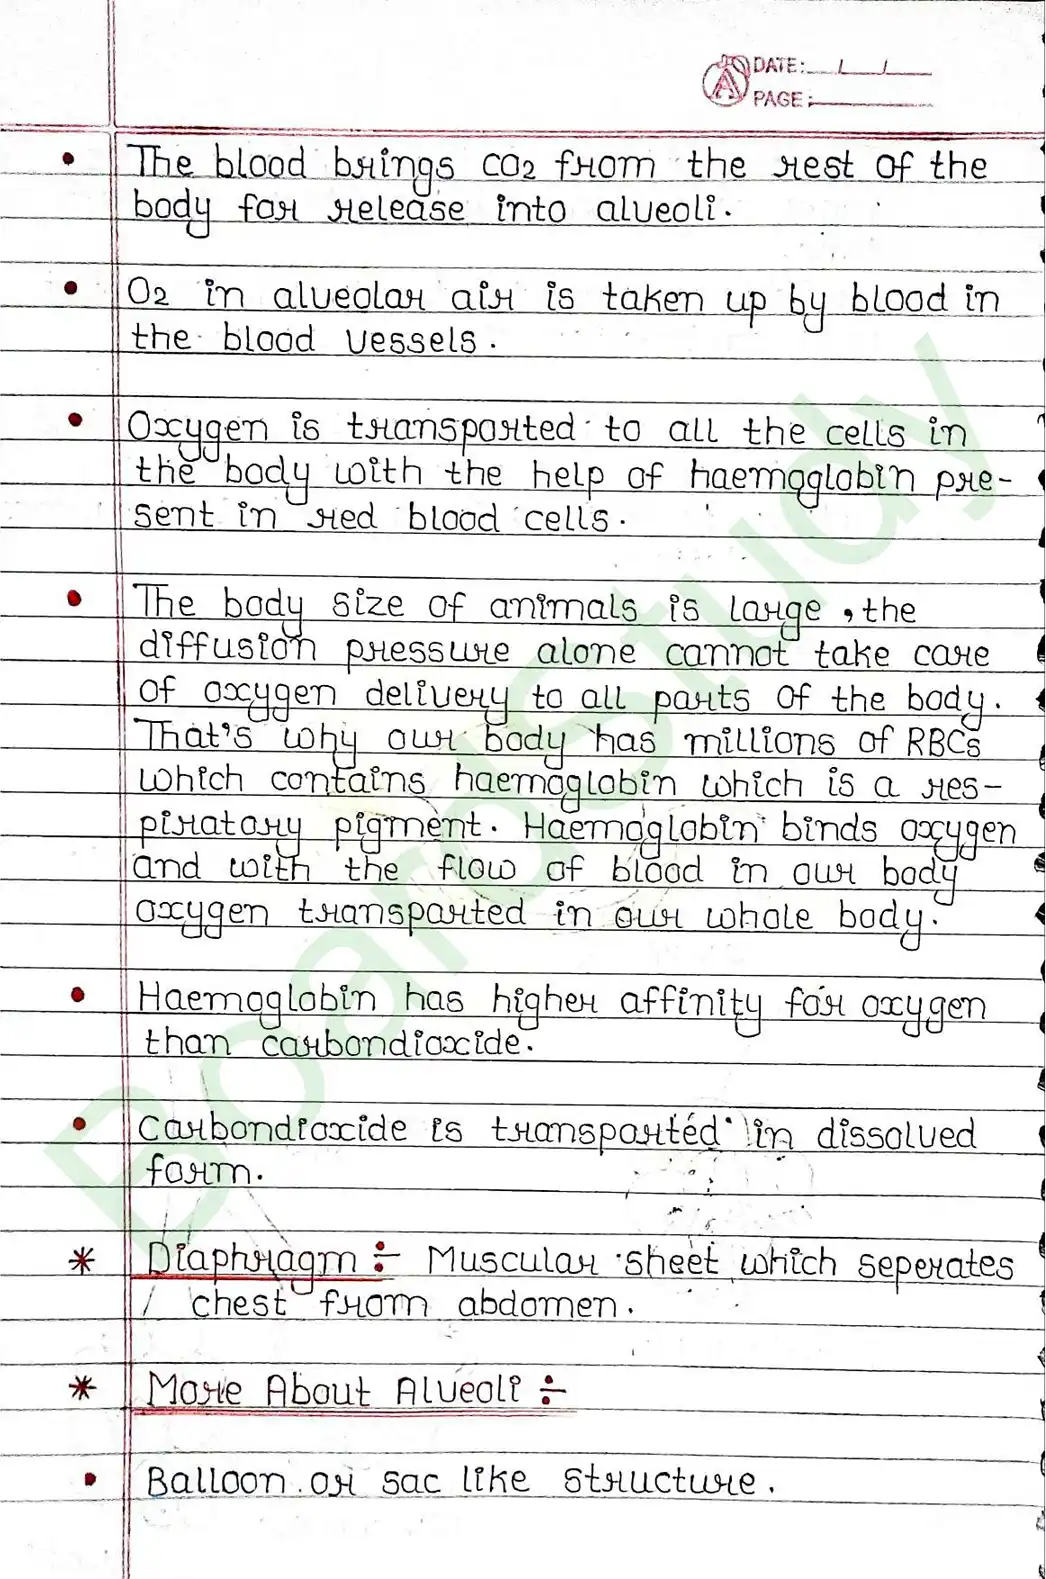 DATE: / /
PAGE:
• The blood brings CO2 from the rest of the
body for release into alveoli.
• O2 in alveolar air is taken up by blood in
the blood vessels.
• Oxygen is transported to all the cells in
the body with the help of haemoglobin pre-
sent in red blood cells.
• The body size of animals is large, the
diffusion pressure alone cannot take care
of oxygen delivery to all parts of the body.
That's why our body has millions of RBCs
which contains haemoglobin which is a res-
piratory pigment. Haemoglobin binds oxygen
and with the flow of blood in our body
oxygen transported in our whole body.
• Haemoglobin has higher affinity for oxygen
than carbondioxide.
• Carbondioxide is transported in dissolved
form.
* Diaphragm ÷ Muscular sheet which seperates
chest from abdomen.
* More About Alveoli ÷
• Balloon or sac like structure.
BoardStudy